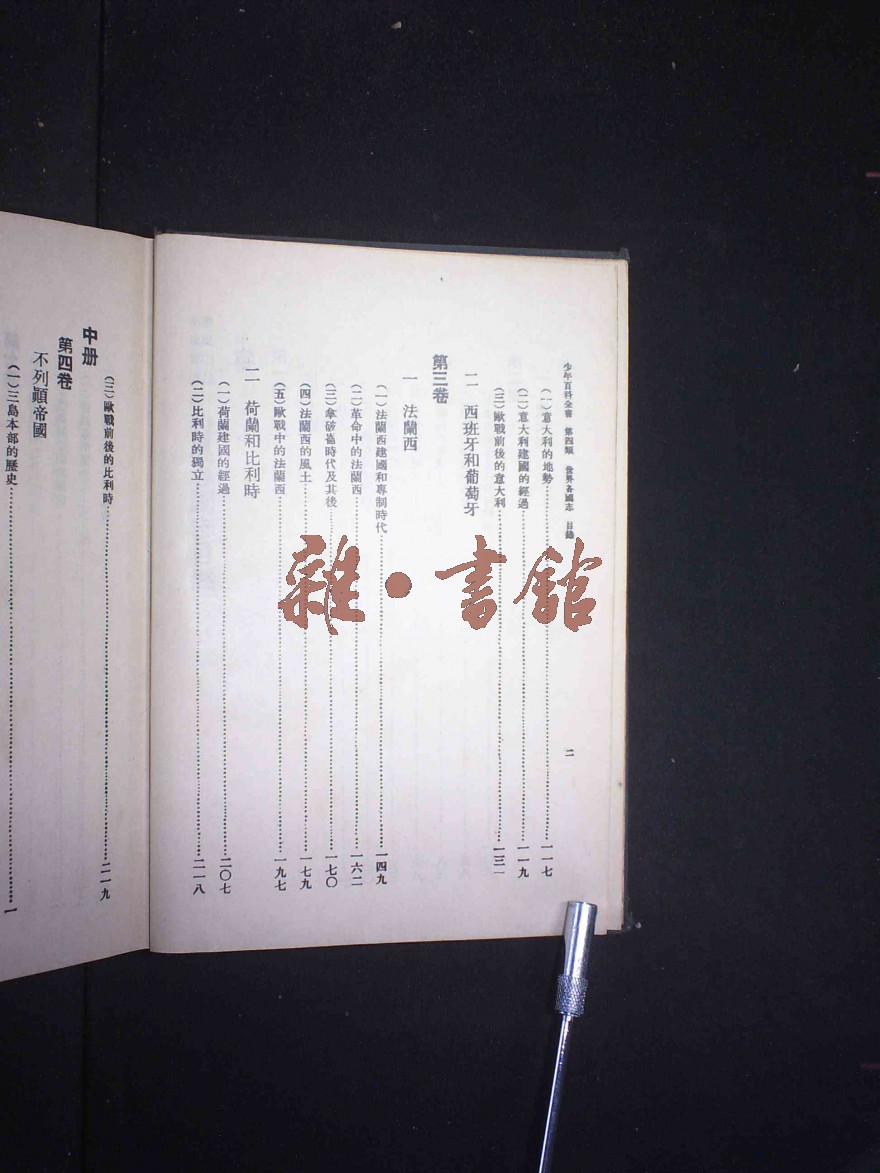 少年百科全書 第四類 世界各國志 目錄 二
(一)意大利的地勢……一一七
(二)意大利建國的經過……一一九
(三)歐戰前後的意大利……一三一
二 西班牙和葡萄牙
第三卷
一 法蘭西
(一)法蘭西建國和專制時代……一四九
(二)革命中的法蘭西……一六二
(三)拿破崙時代及其後……一七〇
(四)法蘭西的風土……一七九
(五)歐戰中的法蘭西……一九七
二 荷蘭和比利時
(一)荷蘭建國的經過……二〇七
(二)比利時的獨立……二一八
(三)歐戰前後的比利時……二一九
中册
第四卷
不列顛帝國
(一)三島本部的歷史……一
雜·書館